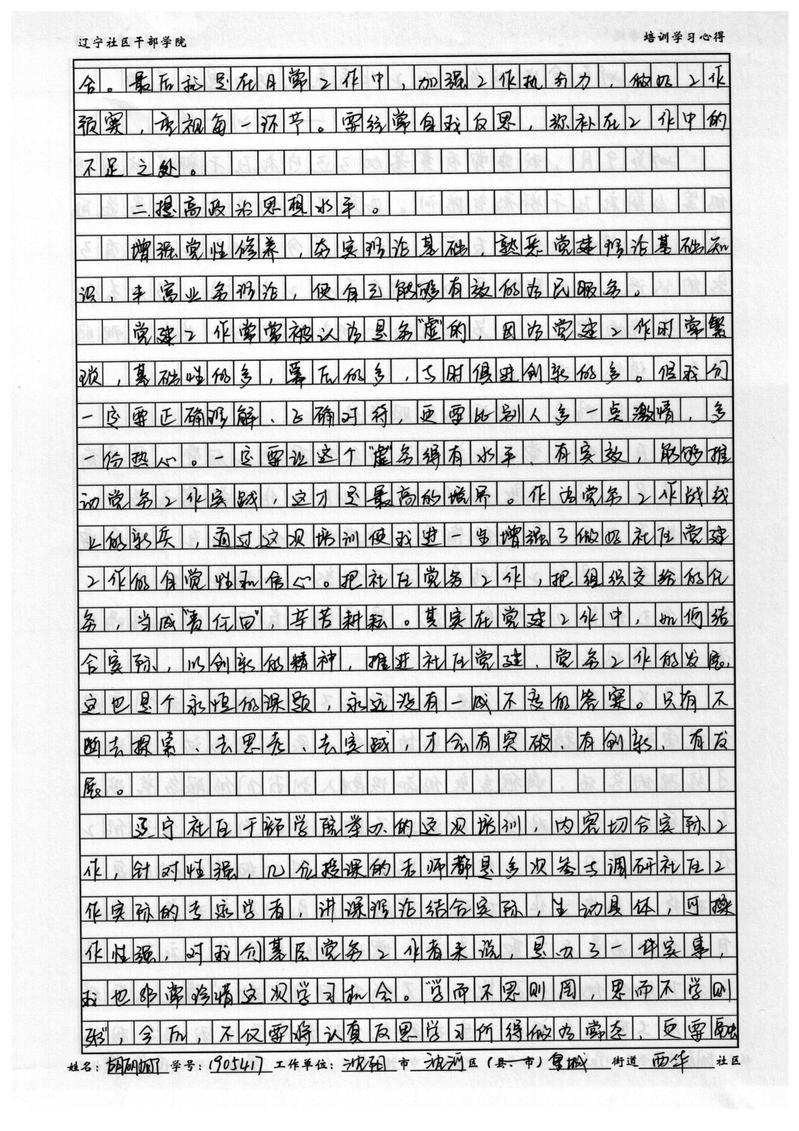 辽宁社区干部学院 培训学习心得
合。最后就是在日常工作中，加强工作执行力，做好工作
预案，重视每一环节。要经常自我反思，弥补在工作中的
不足之处。
二提高政治思想水平。
增强党性修养，夯实理论基础，熟悉党建理论基础知
识，丰富业务理论，使自己能够有效的为民服务。
党建工作常常被认为是务"虚"的，因为党建工作时常繁
琐，基础性的多，幕后的多，与时俱进创新的多。但我们
一定要正确理解、正确对待，更要比别人多一点激情，多
一份热心。一定要让这个"虚"务得有水平、有实效，能够推
动党务工作实践，这才是最高的境界。作为党务工作战线
上的新兵，通过这次培训使我进一步增强了做好社区党建
工作的自觉性和信心。把社区党务工作，把组织交给的任
务，当成"责任田"，辛苦耕耘。其实在党建工作中，如何结
合实际，以创新的精神，推进社区党建、党务工作的发展，
这也是个永恒的课题，永远没有一成不变的答案。只有不
断去探索、去思考、去实践，才会有突破、有创新、有发
展。
辽宁社区干部学院举办的这次培训，内容切合实际工
作，针对性强，几位授课的老师都是多次参与调研社区工
作实际的专家学者，讲课理论结合实际，生动具体，可操
作性强，对我们基层党务工作者来说，是办了一件实事，
我也非常珍惜这次学习机会。"学而不思则罔，思而不学则
殆"，今后，不仅要将认真反思学习所得做为常态，更要融
姓名： 学号：1905417 工作单位：沈阳 市 沈河 区（县、市）皇城 街道 西华 社区